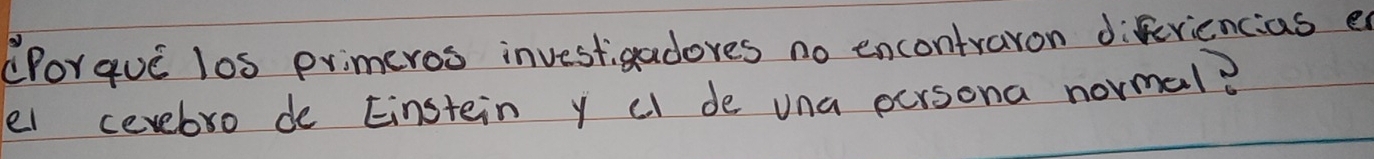 ¿Porqué los primeros investigadores no encontraron difericiencias en
el cerebro de Einstein y el de una persona normal?